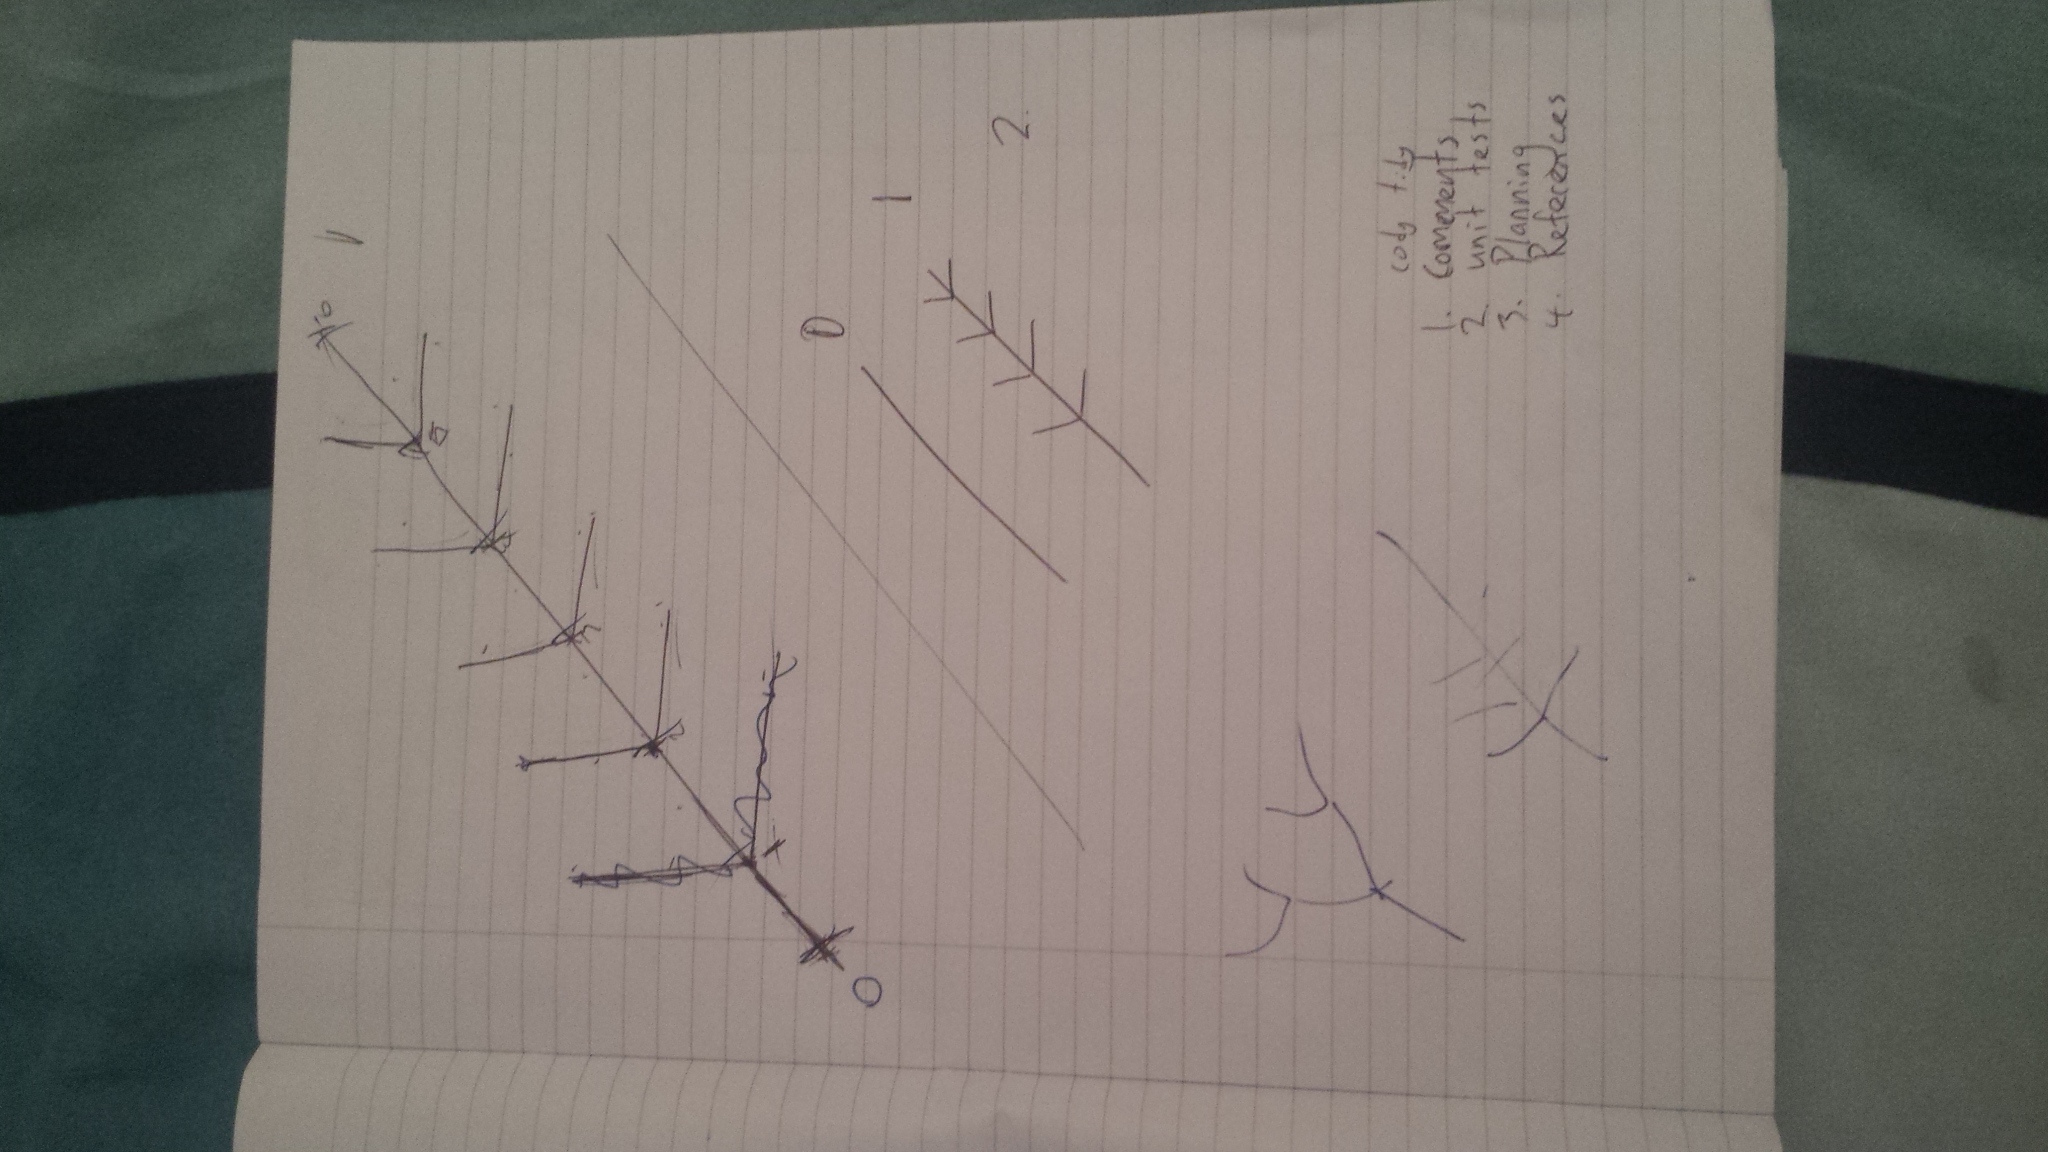 0
0
1
2.
cody tidy
1. Comments
2 unit tests
3. Planning
4. References